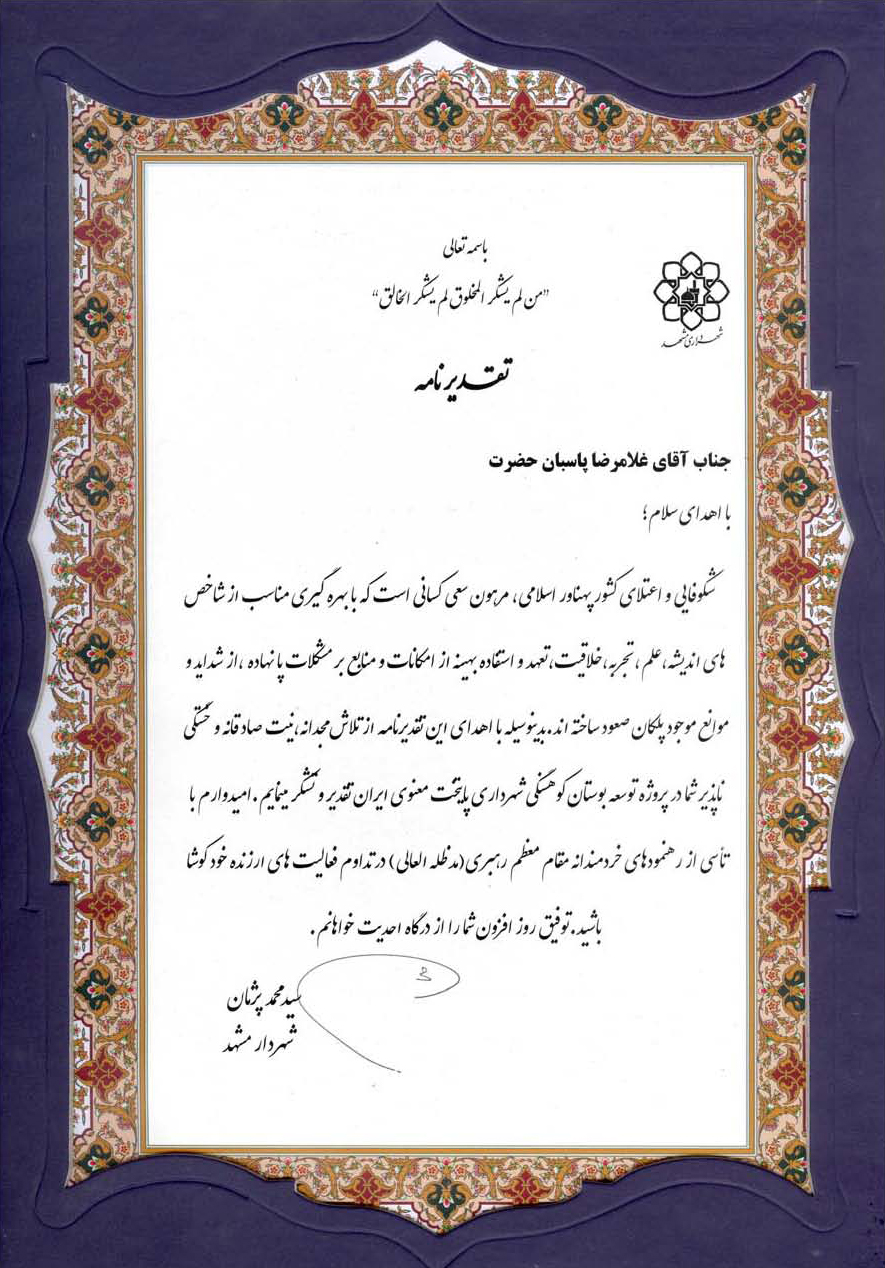 باسمه تعالی
"من لم یشکر المخلوق لم یشکر الخالق"
شهرداری مشهد
تقدیرنامه
جناب آقای غلامرضا پاسبان حضرت
با اهدای سلام؛
شکوفایی و اعتلای کشور پهناور اسلامی، مرهون سعی کسانی است که با بهره گیری مناسب از شاخص
های اندیشه،علم ،تجربه،خلاقیت،تعهد و استفاده بهینه از امکانات و منابع بر مشکلات پا نهاده ،از شداید و
موانع موجود پلکان صعود ساخته اند.بدینوسیله با اهدای این تقدیرنامه از تلاش مجدانه،نیت صادقانه و خستگی
ناپذیر شما در پروژه توسعه بوستان کوهسنگی شهرداری پایتخت معنوی ایران تقدیر و تشکر مینمایم.امیدوارم با
تأسی از رهنمودهای خردمندانه مقام معظم رهبری(مدظله العالی) در تداوم فعالیت های ارزنده خود کوشا
باشید.توفیق روز افزون شما را از درگاه احدیت خواهانم.
سید محمد پژمان
شهردار مشهد